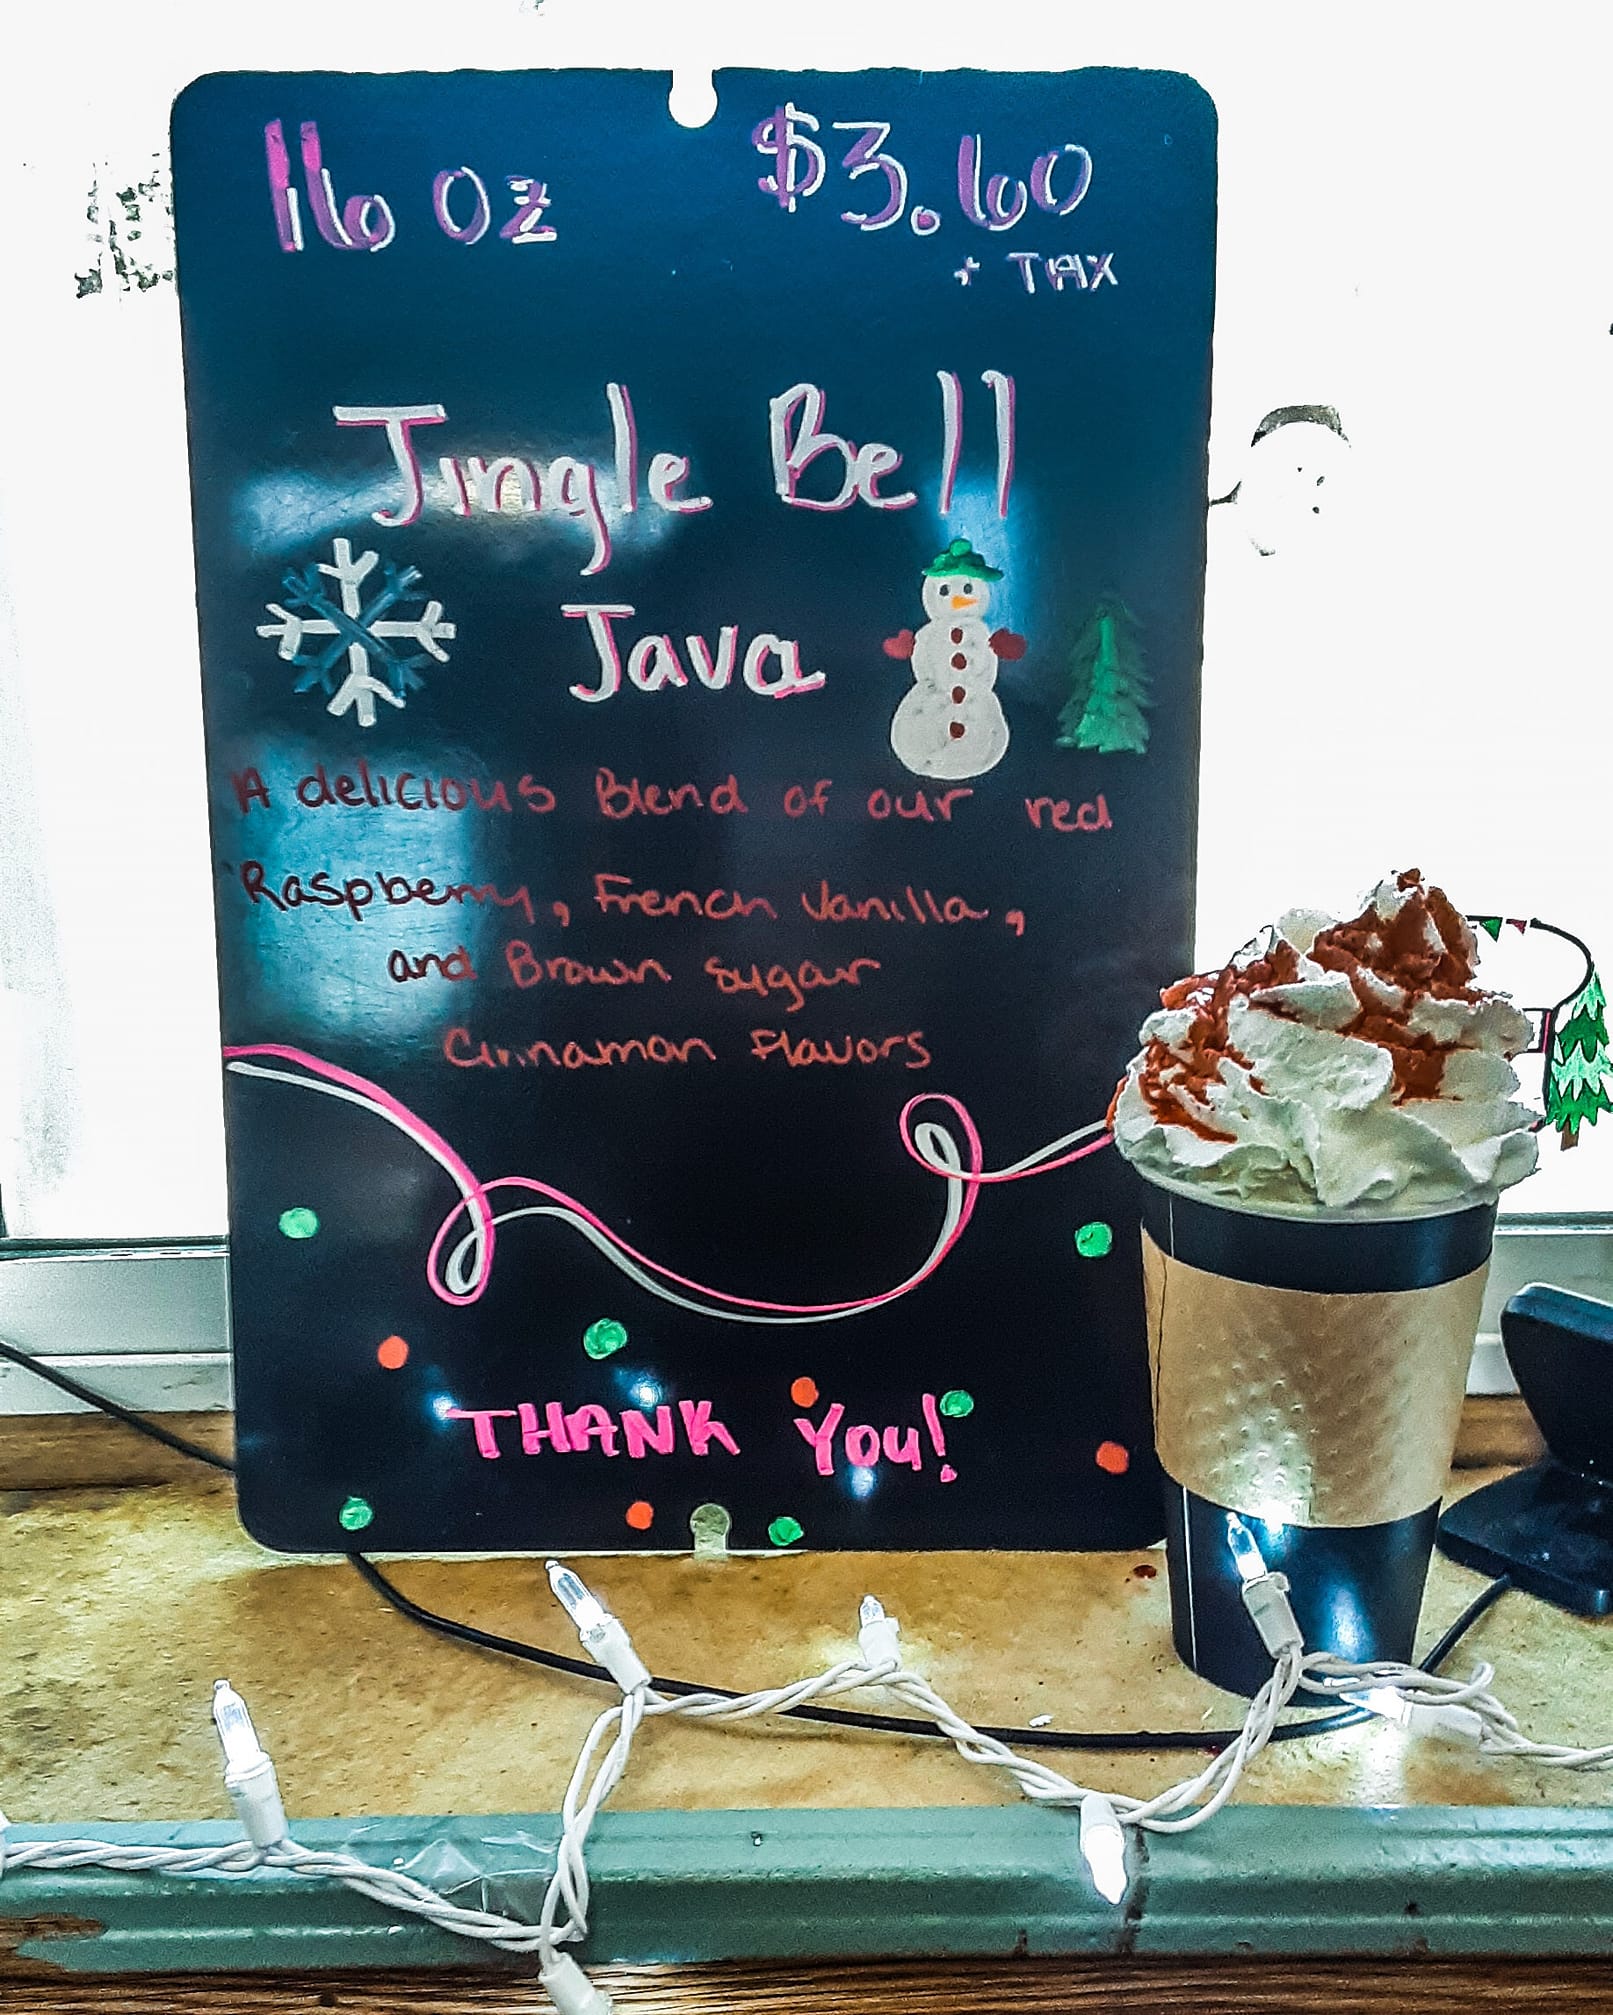 16 oz $3.60
+ TAX
Jingle Bell
Java
A delicious Blend of our red
Raspberry, French Vanilla,
and Brown Sugar
Cinnamon Flavors
THANK You!